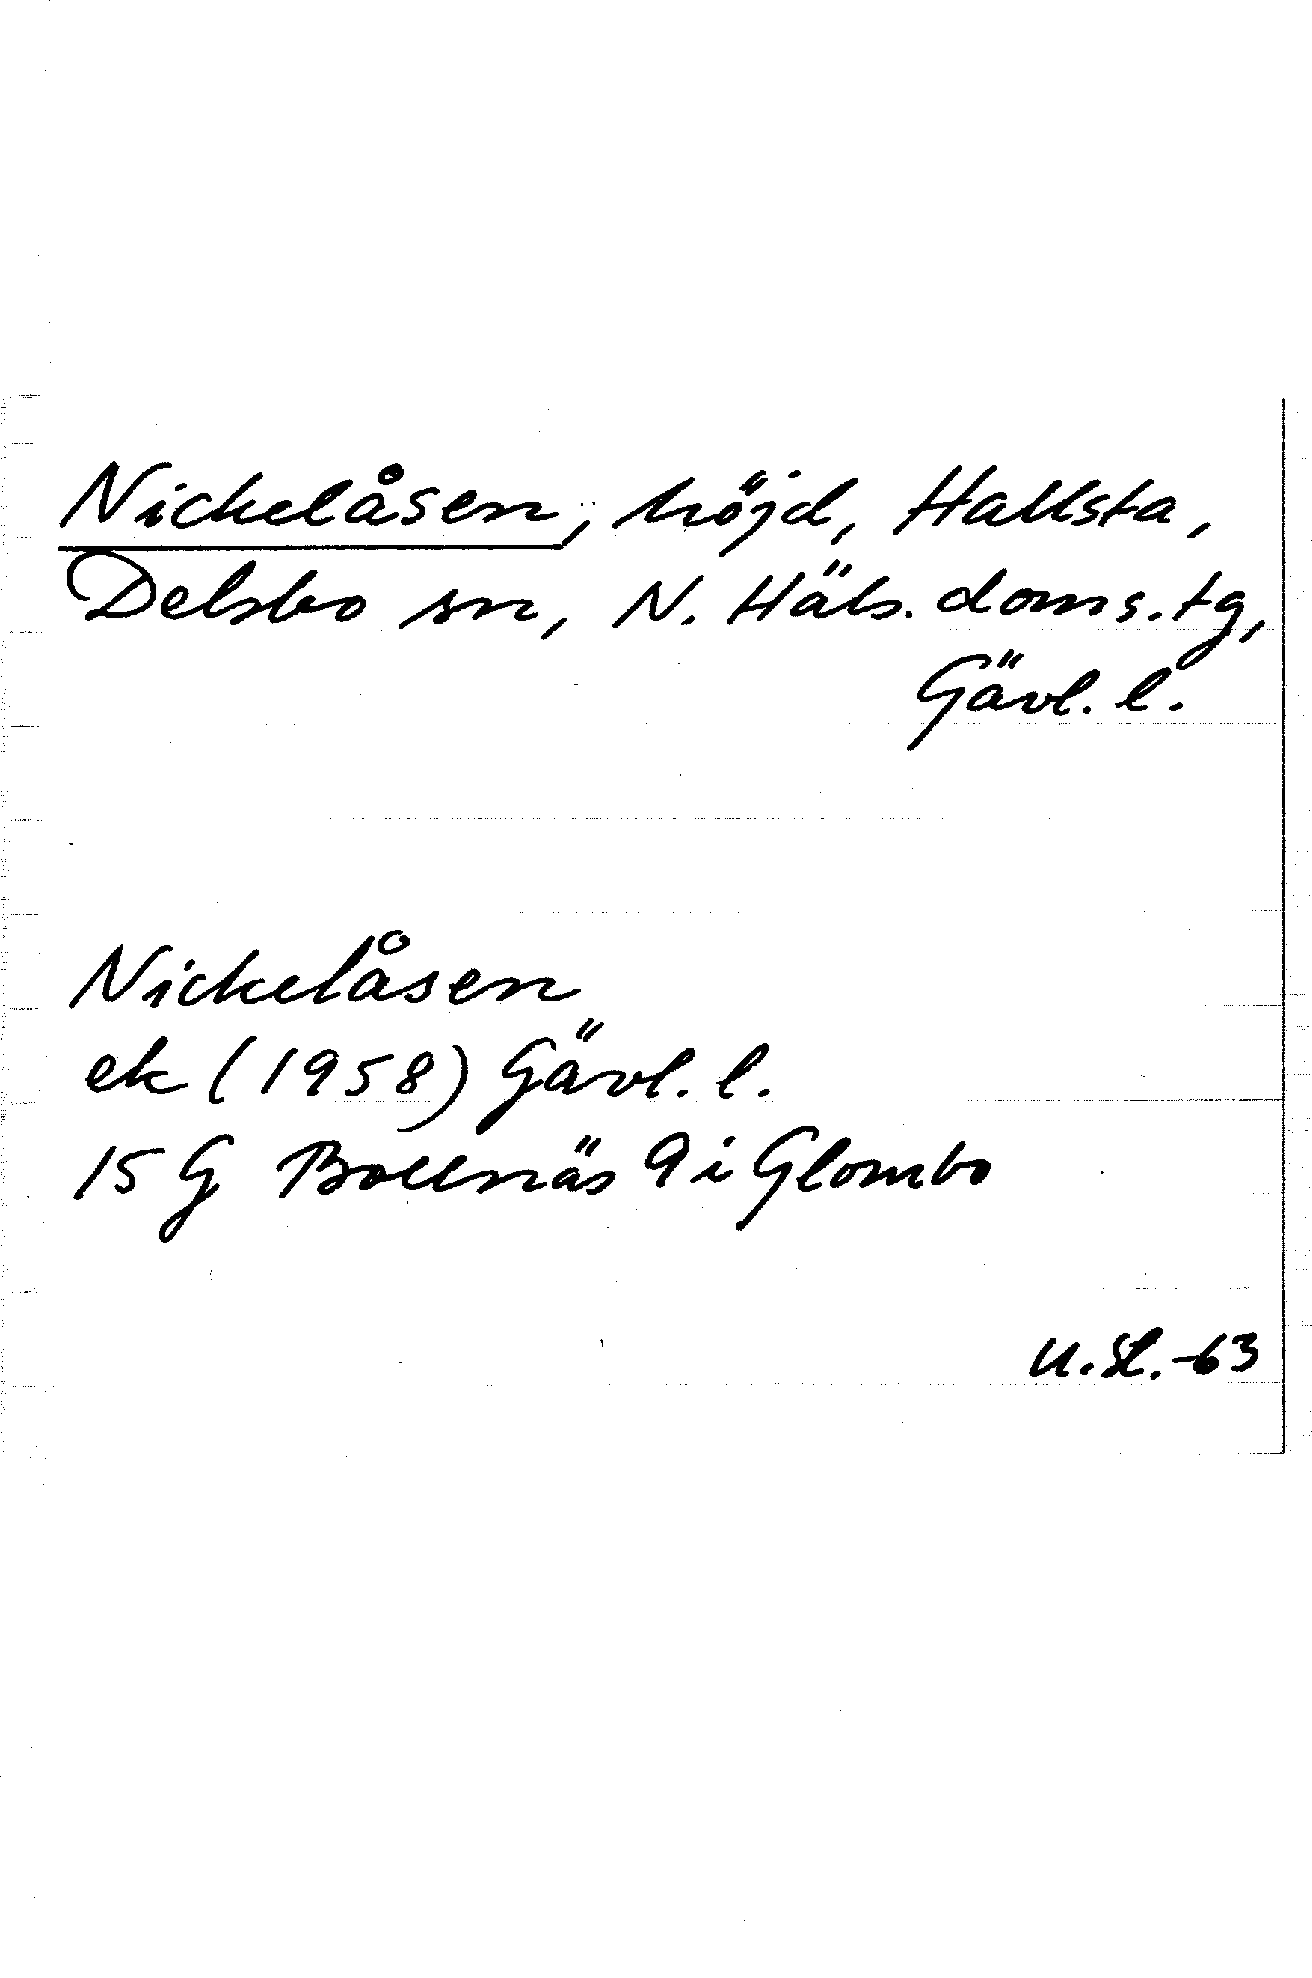 Nickelåsen, höjd, Hallsta,
Delsbo sn, N. Häls. doms. tg,
Gävl. l.
Nickelåsen
ek (1958) Gävl. l.
15 G Bollnäs 9 i Glombo
U. Sl. -63